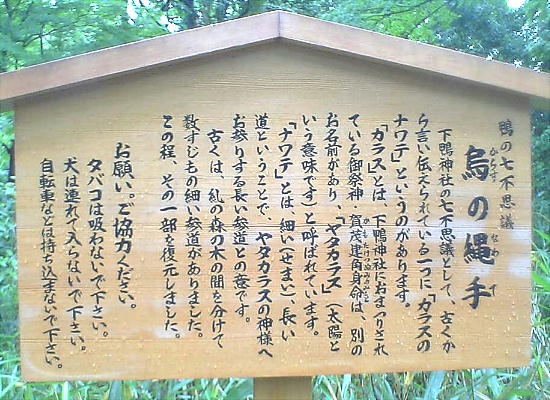 鴨の七不思議
烏の縄手
からす なわて
下鴨神社の七不思議として、古くか
ら言い伝えられている一つに「ガラスの
ナワテ」というのがあります。
「ガラス」とは、下鴨神社におまつりされ
ている御祭神・賀茂建角身命は、別の
お名前があり、「ヤタカラス」(太陽と
いう意味です)と呼ばれています。
「ナワテ」とは細い(せまい)、長い
道ということで、ヤタカラスの神様へ
お参りする長い参道との意です。
古くは、糺の森の木の間を分けて
数すじもの細い参道がありました。
この程、その一部を復元しました。
お願い。ご協力ください。
タバコは吸わないで下さい。
犬は連れて入らないで下さい。
自転車などは持ち込まないで下さい。